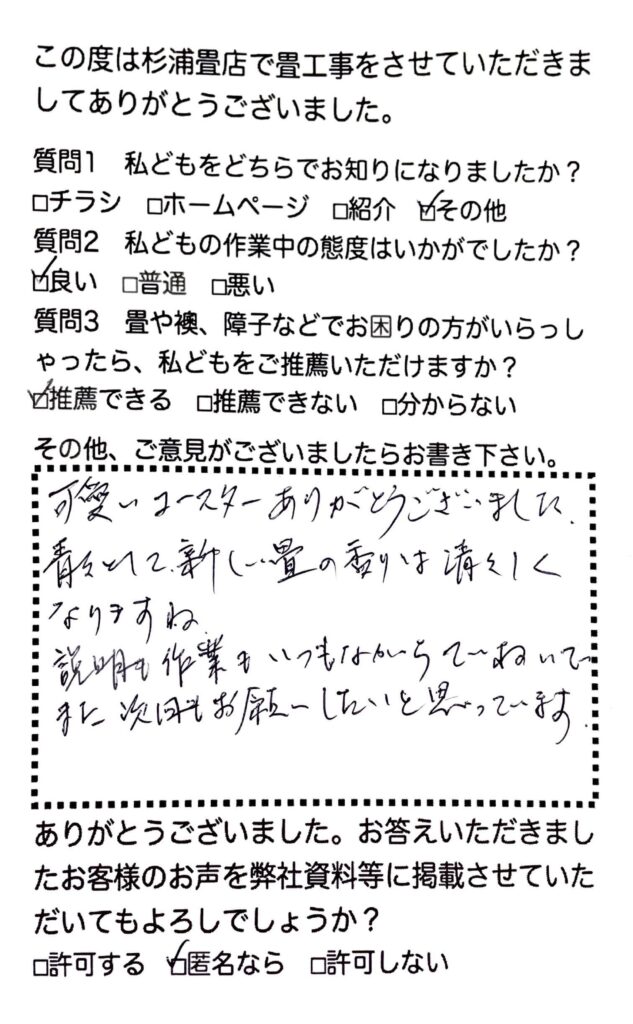 この度は杉浦畳店で畳工事をさせていただきま
してありがとうございました。
質問1 私どもをどちらでお知りになりましたか？
□チラシ □ホームページ □紹介 ☑その他
質問2 私どもの作業中の態度はいかがでしたか？
☑良い □普通 □悪い
質問3 畳や襖、障子などでお困りの方がいらっし
ゃったら、私どもをご推薦いただけますか？
☑推薦できる □推薦できない □分からない
その他、ご意見がございましたらお書き下さい。
可愛いコースターありがとうございました。
青々として、新しい畳の香りは清々しく
なりますね
説明も作業もいつもながらていねいで
また次回もお願いしたいと思っています。
ありがとうございました。お答えいただきまし
たお客様のお声を弊社資料等に掲載させていた
だいてもよろしでしょうか？
□許可する ☑匿名なら □許可しない